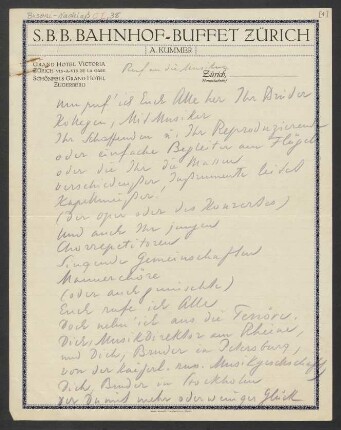 Busoni-Nachlaß C I, 38
[1]
S.B.B. BAHNHOF-BUFFET ZÜRICH
A. KUMMER
GRAND HOTEL VICTORIA
ZÜRICH VIS-À-VIS DE LA GARE
SCHÖNBERG GRAND HOTEL
Zürich,
Ruf an die
Nun ruf' ich Euch Alle her Ihr Brüder
Kollegen, Mitmusiker
Ihr Schaffenden u. Ihr Reproduzierende
oder einfache Begleiter am Flügel
oder die Ihr die Massen
verschiedenster Instrumente leitet
Kapellmeister
(der Oper oder des Konzertes)
Und auch Ihr jungen
Chorrepetitoren
Singende Gemeinschaften
Männerchöre
(oder auch gemischte)
Euch rufe ich Alle
Doch nehm' ich aus die Tenöre.
Dich, Musikdirektor am Rheine,
und Dich, Bruder in Petersburg,
von der kaiserl. russ. Musikgesellschaft
Dich, Bruder in Stockholm
der Du mit mehr oder weniger Glück